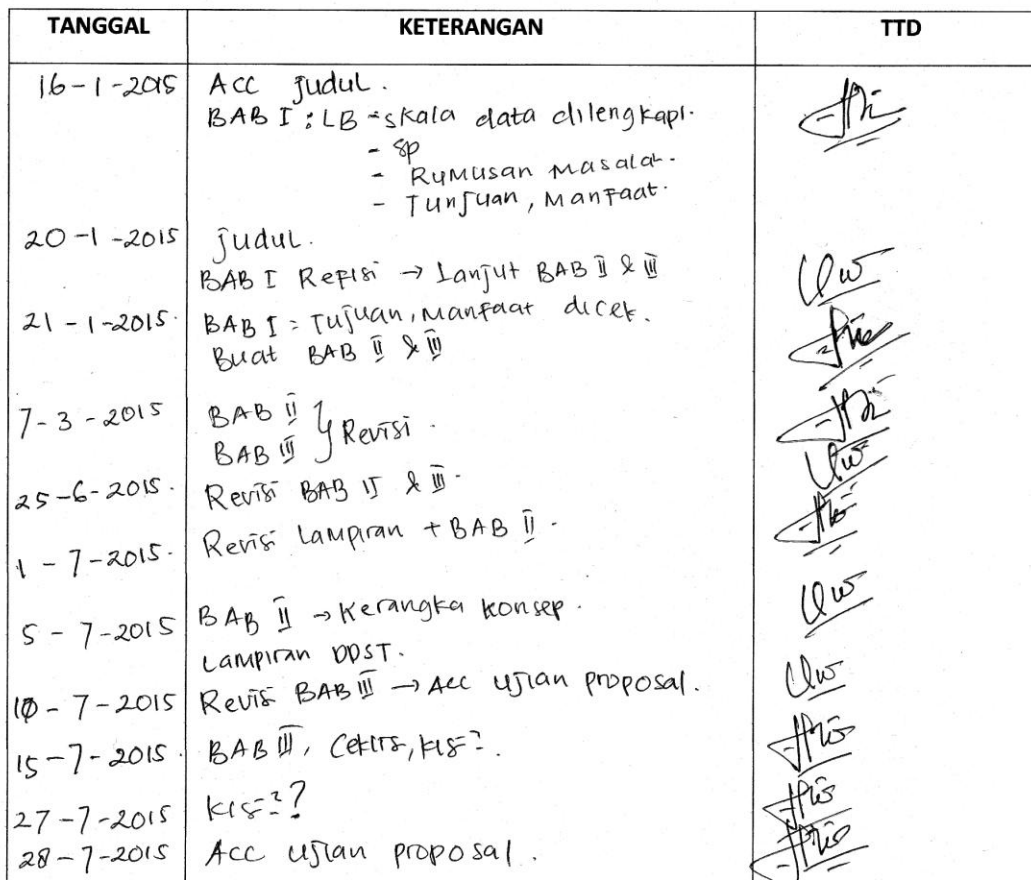 TANGGAL KETERANGAN TTD
16-1-2015 Acc Judul.
BAB I : LB - skala data dilengkapi.
- SP
- Rumusan Masalah.
- Tunjuan, Manfaat.
20-1-2015 Judul.
BAB I Refisi → Lanjut BAB II & III
21-1-2015. BAB I : Tujuan, Manfaat dicek.
Buat BAB II & III
7-3-2015 BAB II } Revisi.
BAB III
25-6-2015. Revisi BAB II & III.
1-7-2015. Revisi Lampiran + BAB II.
5-7-2015 BAB II → Kerangka konsep.
Lampiran DDST.
10-7-2015 Revisi BAB III → Acc Ujian proposal.
15-7-2015. BAB III,
27-7-2015
28-7-2015 Acc Ujian proposal.